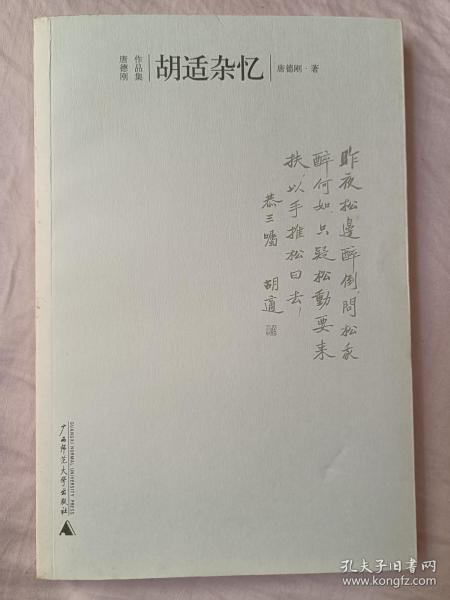 唐德刚
作品集
胡适杂忆
唐德刚·著
昨夜松邊醉倒,問松我
醉何如.只疑松動要来
扶,以手推松曰去!
恭三囑 胡適
广西师范大学出版社
GUANGXI NORMAL UNIVERSITY PRESS
孔夫子旧书网
www.kongfz.com